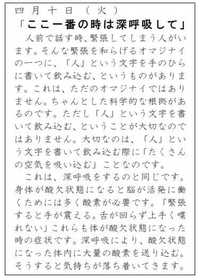 四月十日（火）
「ここ一番の時は深呼吸して」
人前で話す時、緊張してしまう人がい
ます。そんな緊張を和らげるオマジナイ
の一つに、「人」という文字を手のひら
に書いて飲み込む、というものがありま
す。これは、ただのオマジナイではあり
ません。ちゃんとした科学的な根拠があ
るのです。ただし「人」という文字を書
いて飲み込む、ということが大切なので
はありません。大切なのは、「人」とい
う文字を飲み込む際に「たくさん
の空気を吸い込む」ことなのです。
これは、深呼吸をするのと同じです。
身体が酸欠状態になると脳が活発に働
くためには多く酸素が必要です。「緊張
すると手が震える。舌が回らず上手く喋
れない」これらも体が酸欠状態になった
時の症状です。深呼吸により、酸欠状態
になった体内に大量の酸素を送り込む。
そうすると気持ちが落ち着いてきます。